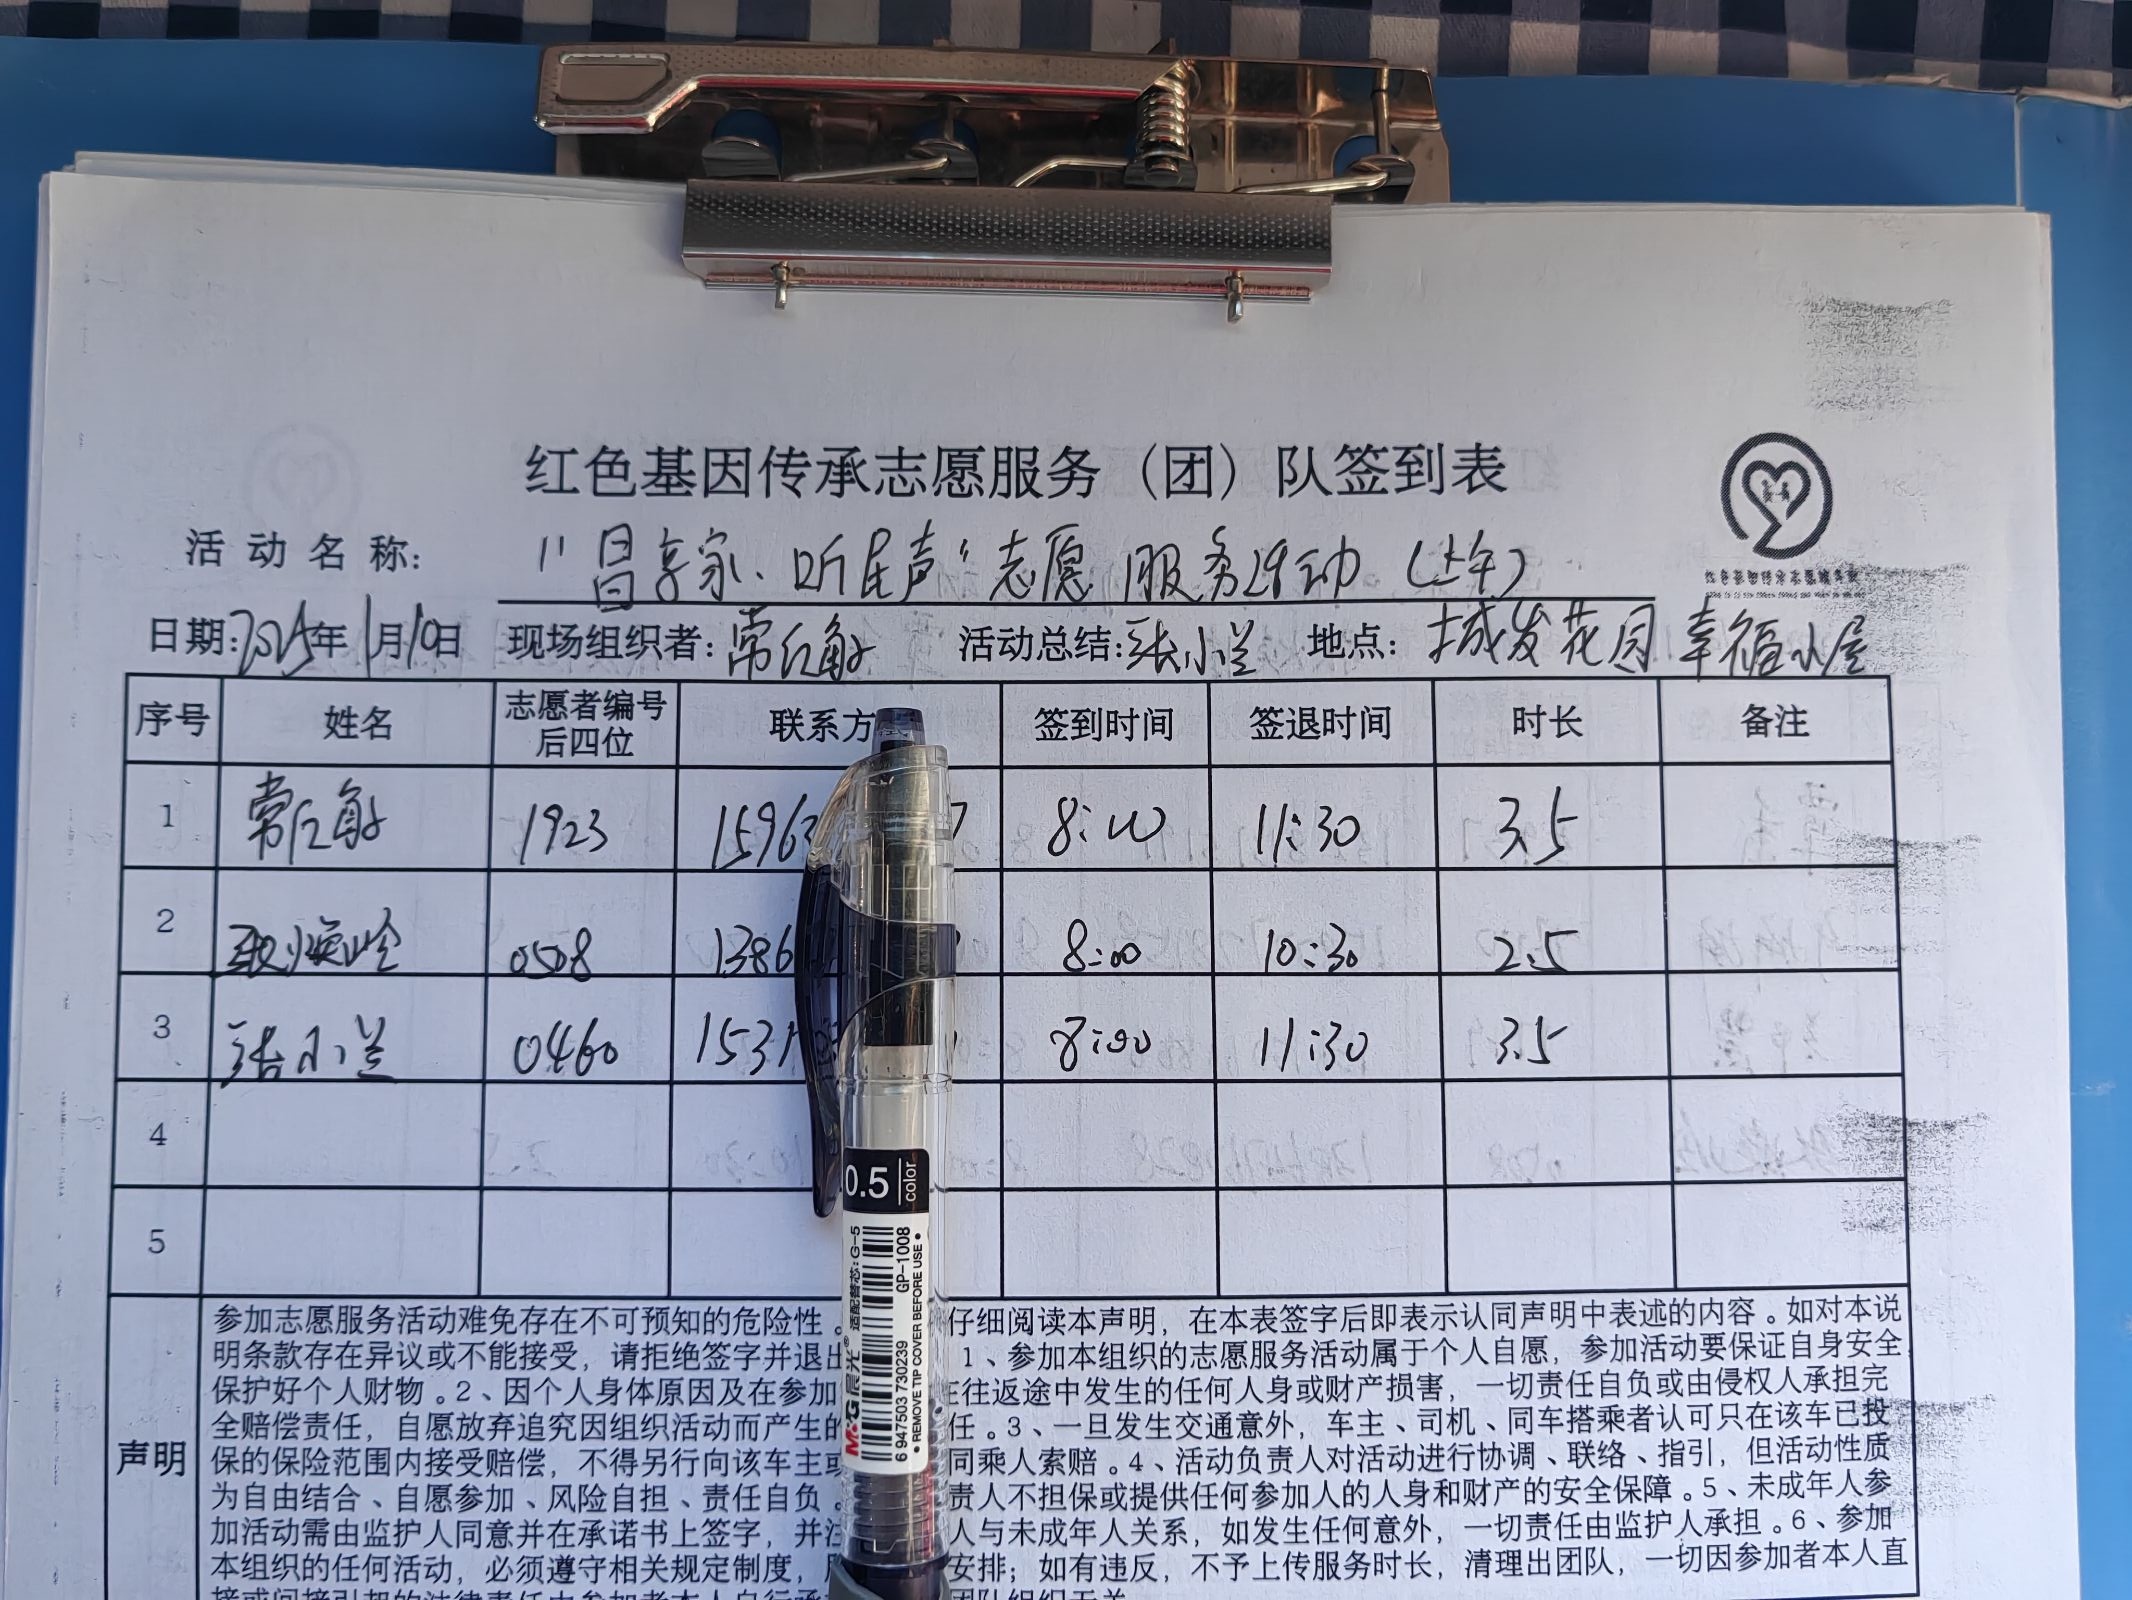 红色基因传承志愿服务（团）队签到表
活动名称: "昌享家、听民声"志愿服务活动（上午）
日期:2025年1月10日 现场组织者:常红敏 活动总结:张小兰 地点: 城发花园幸福小屋
序号 姓名 志愿者编号后四位 联系方 签到时间 签退时间 时长 备注
1 常红敏 1923 15963 7 8:00 11:30 3.5
2 0508 1386 8:00 10:30 2.5
3 张小兰 0460 1531 8:00 11:30 3.5
4
5
声明
参加志愿服务活动难免存在不可预知的危险性。 仔细阅读本声明，在本表签字后即表示认同声明中表述的内容。如对本说
明条款存在异议或不能接受，请拒绝签字并退出 1、参加本组织的志愿服务活动属于个人自愿，参加活动要保证自身安全
保护好个人财物。2、因个人身体原因及在参加 在往返途中发生的任何人身或财产损害，一切责任自负或由侵权人承担完
全赔偿责任，自愿放弃追究因组织活动而产生的 任。3、一旦发生交通意外，车主、司机、同车搭乘者认可只在该车已投
保的保险范围内接受赔偿，不得另行向该车主或 同乘人索赔。4、活动负责人对活动进行协调、联络、指引，但活动性质
为自由结合、自愿参加、风险自担、责任自负。 责人不担保或提供任何参加人的人身和财产的安全保障。5、未成年人参
加活动需由监护人同意并在承诺书上签字，并注 人与未成年人关系，如发生任何意外，一切责任由监护人承担。6、参加
本组织的任何活动，必须遵守相关规定制度，服 安排；如有违反，不予上传服务时长，清理出团队，一切因参加者本人直
0.5 color
M&G晨光® 适配替芯:G-5
GP-1008
6 947503 730239
• REMOVE TIP COVER BEFORE USE •